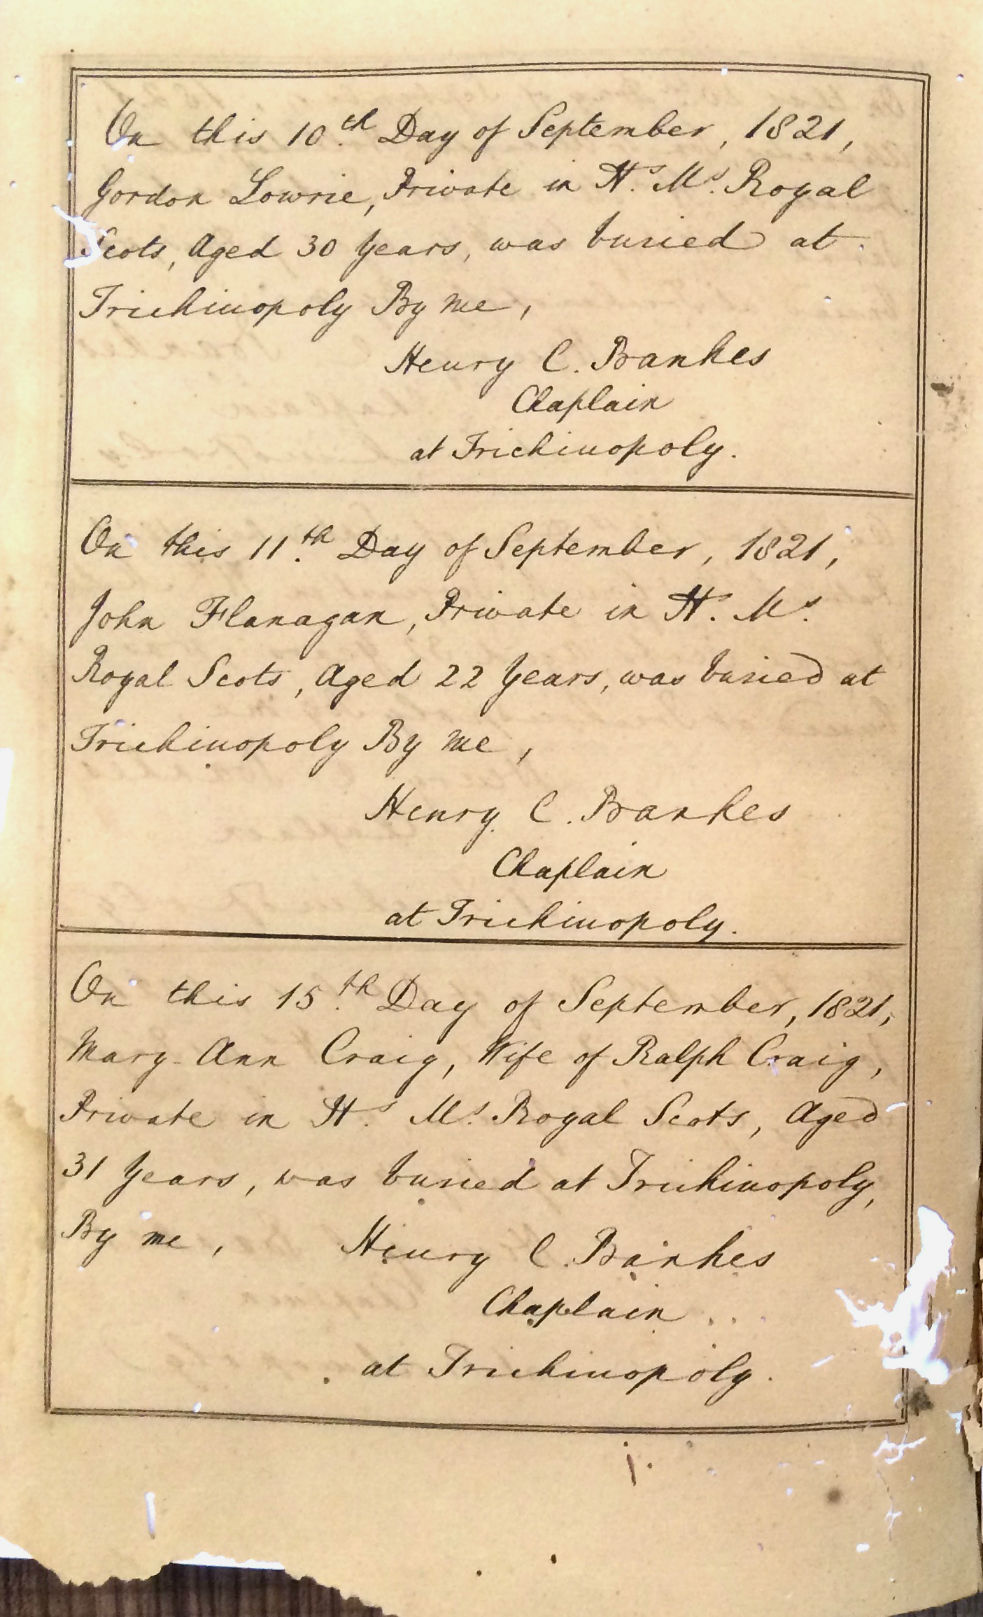 On this 10th Day of September, 1821,
Gordon Lowrie, Private in H.s M.s Royal
Scots, Aged 30 Years, was buried at
Trichinopoly By me,
Henry C. Bankes
Chaplain
at Trichinopoly.
On this 11th Day of September, 1821,
John Flanagan, Private in H. M.s
Royal Scots, Aged 22 Years, was buried at
Trichinopoly By me,
Henry C. Bankes
Chaplain
at Trichinopoly.
On this 15th Day of September, 1821,
Mary Ann Craig, Wife of Ralph Craig,
Private in H.s M.s Royal Scots, Aged
31 Years, was buried at Trichinopoly,
By me, Henry C. Bankes
Chaplain
at Trichinopoly.